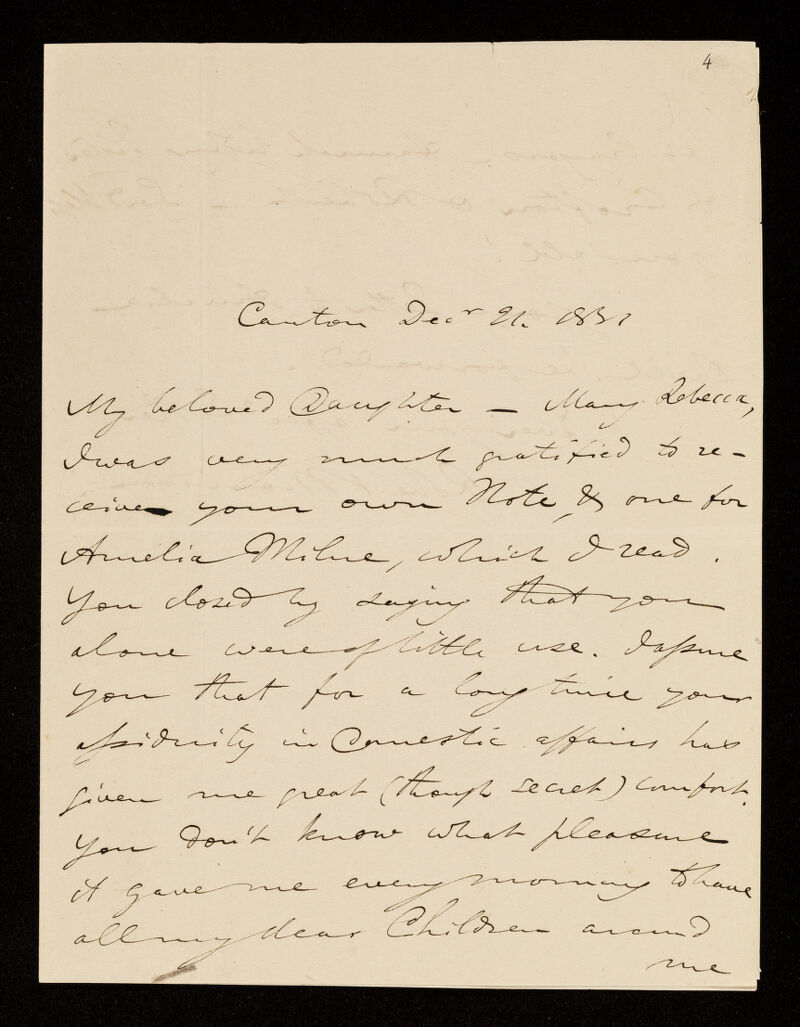 4
Canton Decr 21. 1831
My beloved Daughter — Mary Rebecca,
I was very much gratified to re-
ceive your own Note, & one for
Amelia Milne, which I read.
You closed by saying that you
alone were of little use. I assure
you that for a long time your
assiduity in Domestic affairs has
given me great (though secret) comfort.
You don't know what pleasure
it gave me every morning to have
all my dear Children around
me